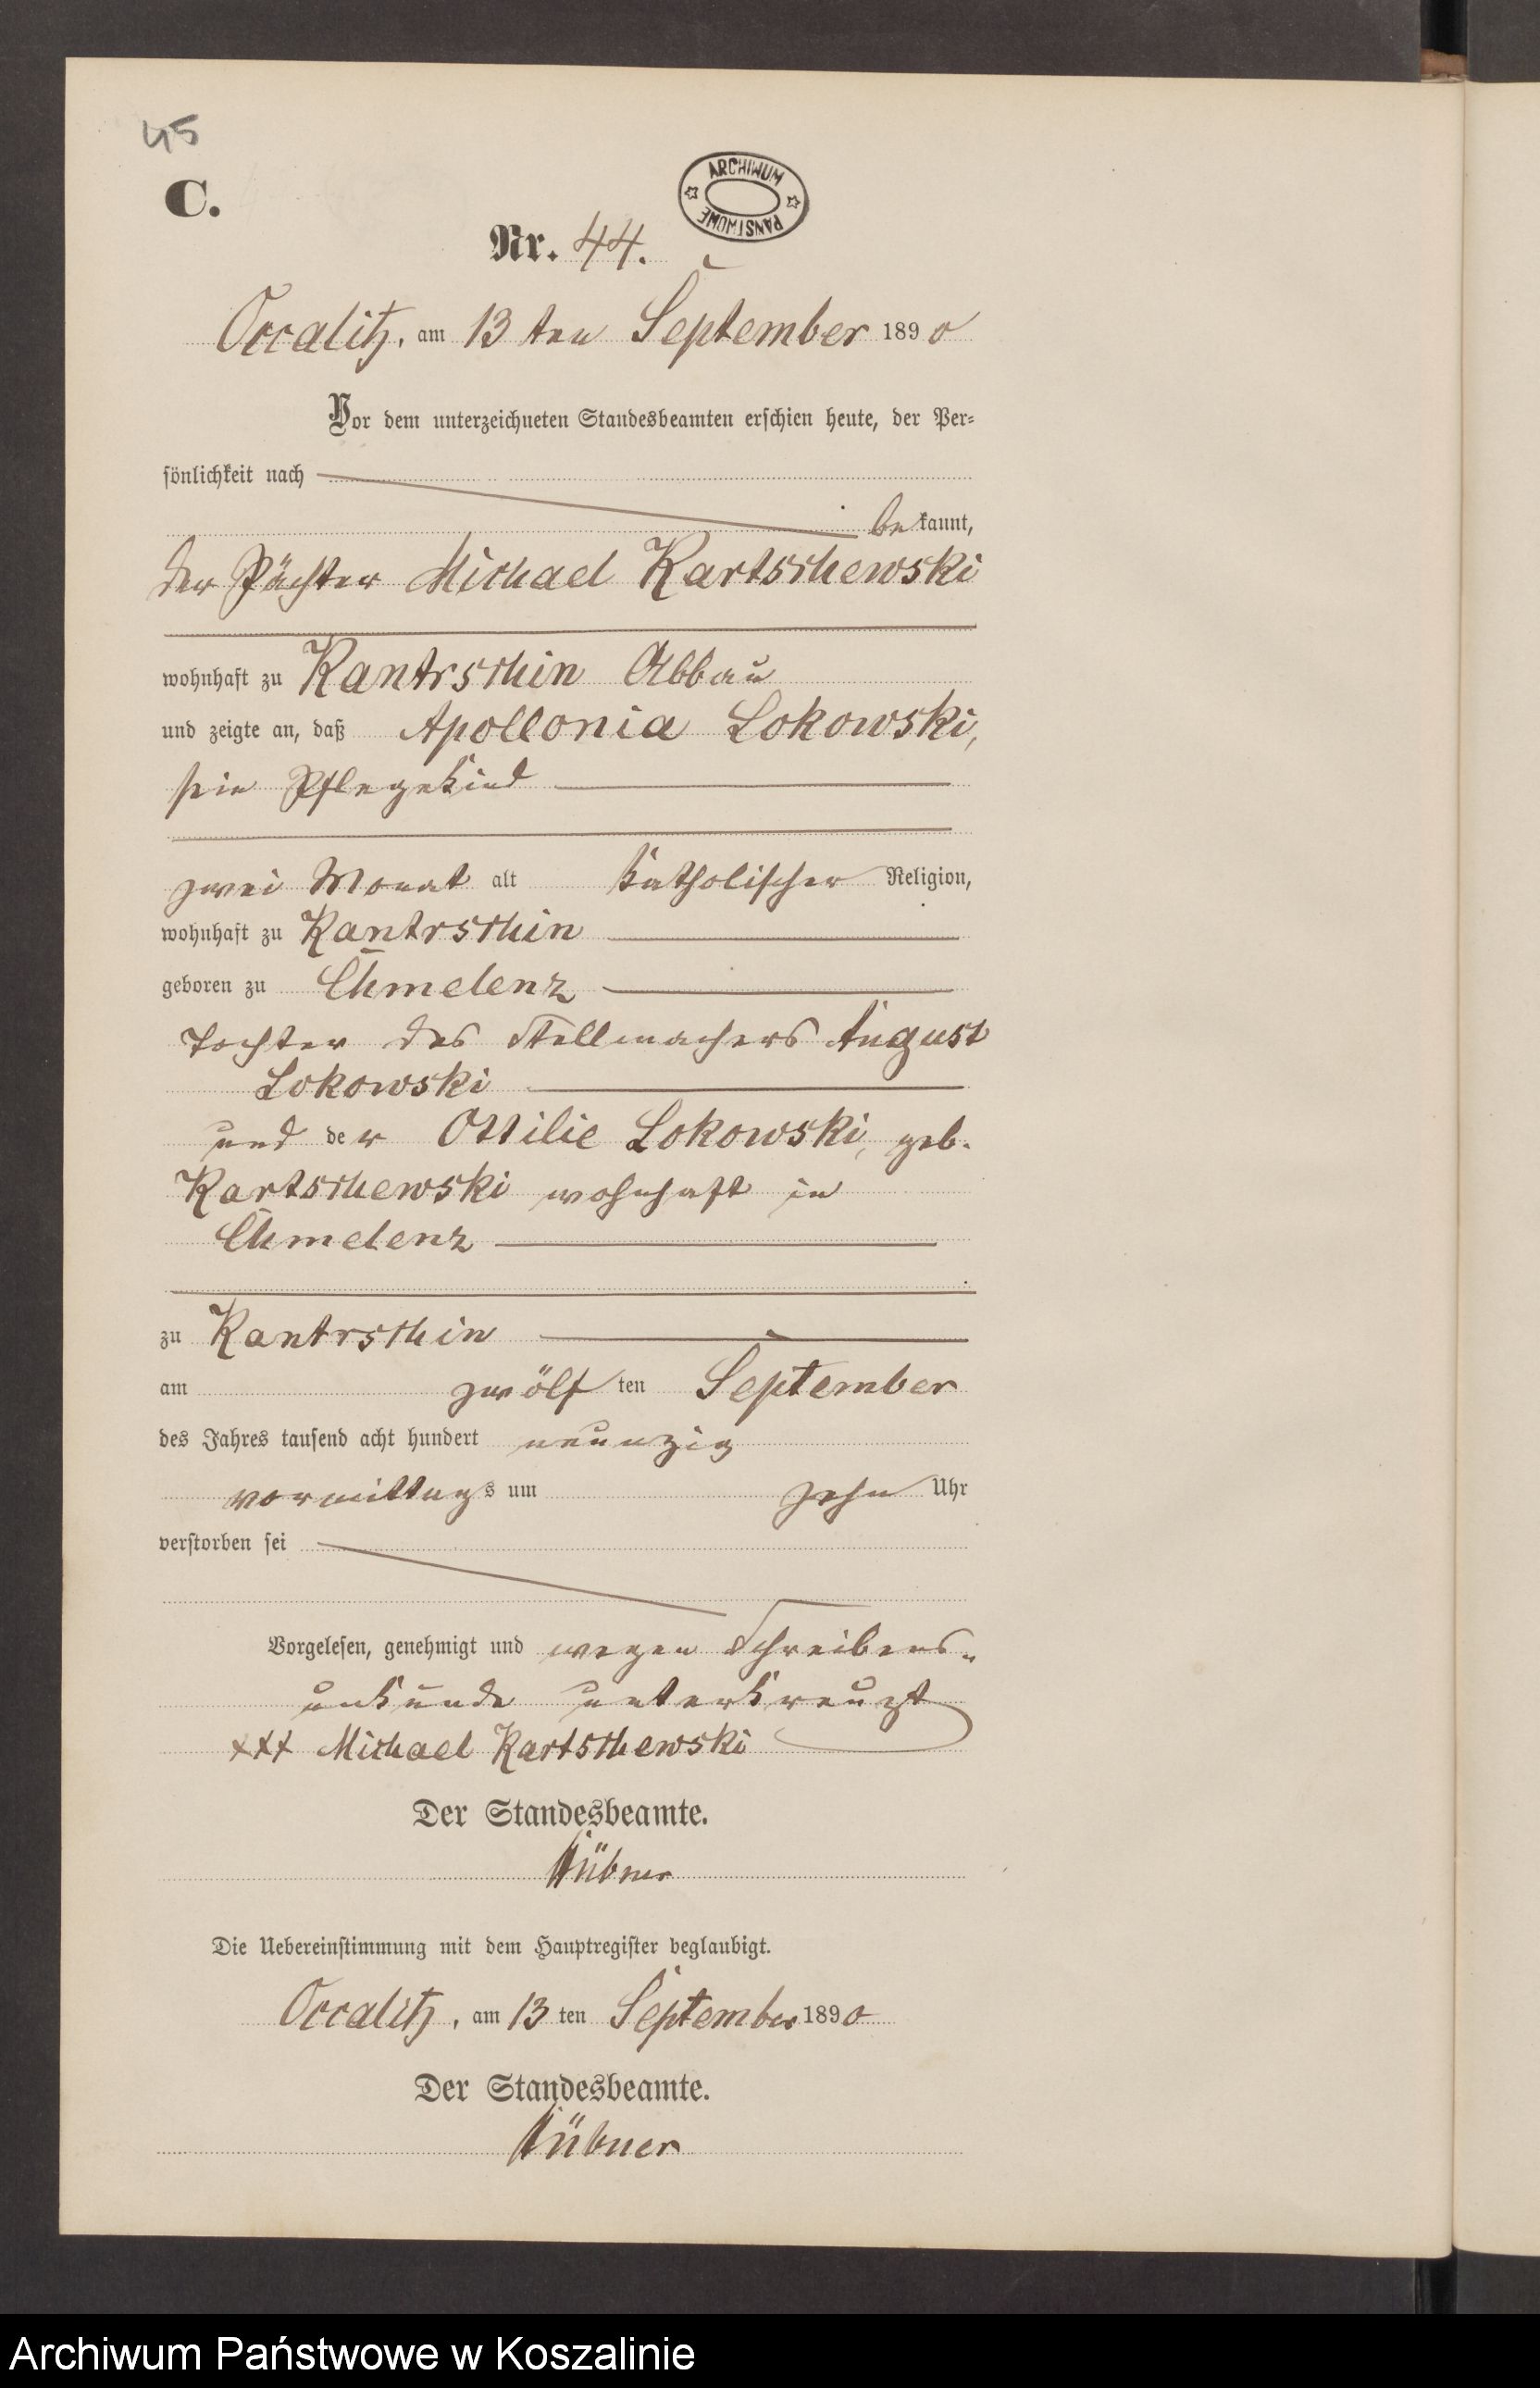 45
C.
ARCHIWUM
PAŃSTWOWE
Nr. 44.
Occalitz, am 13 ten September 1890
Vor dem unterzeichneten Standesbeamten erschien heute, der Per-
sönlichkeit nach
bekannt,
der Pächter Michael Kartschewski
wohnhaft zu Kantrschin Abbau
und zeigte an, daß Apollonia Lokowski,
sein Pflegekind
zwei Monat alt katholischer Religion,
wohnhaft zu Kantrschin
geboren zu Chmelenz
Tochter des Stellmachers August
Lokowski
und der Ottilie Lokowski, geb.
Kartschewski wohnhaft in
Chmelenz
zu Kantrschin
am zwölf ten September
des Jahres tausend acht hundert neunzig
vormittags um zehn Uhr
verstorben sei
Vorgelesen, genehmigt und wegen Schreibens-
unkunde unterkreuzt
+++ Michael Kartschewski
Der Standesbeamte.
Hübner
Die Uebereinstimmung mit dem Hauptregister beglaubigt.
Occalitz, am 13 ten September 1890
Der Standesbeamte.
Hübner
Archiwum Państwowe w Koszalinie